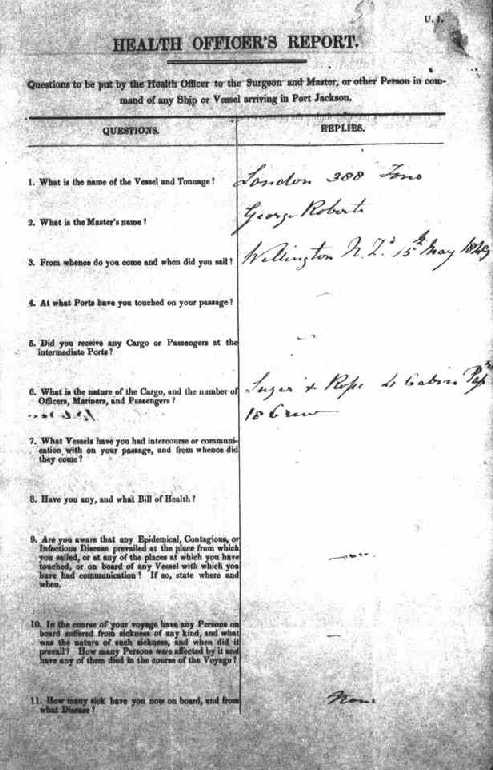 U. 1.
HEALTH OFFICER'S REPORT.
Questions to be put by the Health Officer to the Surgeon and Master, or other Person in com-
mand of any Ship or Vessel arriving in Port Jackson.
QUESTIONS.
REPLIES.
1. What is the name of the Vessel and Tonnage?
London 388 Tons
2. What is the Master's name?
George Roberts
3. From whence do you come and when did you sail?
Wellington N. Zd 15th May
4. At what Ports have you touched on your passage?
5. Did you receive any Cargo or Passengers at the
Intermediate Ports?
6. What is the nature of the Cargo, and the number of
Officers, Mariners, and Passengers?
Sugar & Rope Cabin
18 Crew
7. What Vessels have you had intercourse or communi-
cation with on your passage, and from whence did
they come?
8. Have you any, and what Bill of Health?
9. Are you aware that any Epidemical, Contagious, or
Infectious Disease prevailed at the place from which
you sailed, or at any of the places at which you have
touched, or on board of any Vessel with which you
have had communication? If so, state where and
when.
10. In the course of your voyage have any Persons on
board suffered from sickness of any kind, and what
was the nature of such sickness, and when did it
prevail? How many Persons were affected by it and
have any of them died in the course of the Voyage?
11. How many sick have you now on board, and from
what Disease?
None